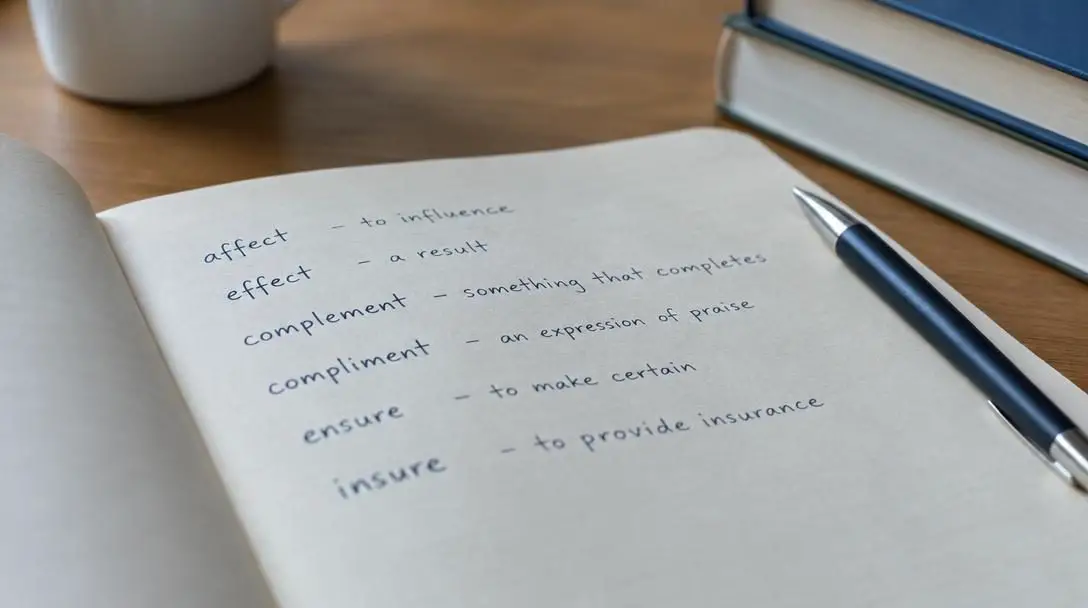 affect - to influence
effect - a result
complement - something that completes
compliment - an expression of praise
ensure - to make certain
insure - to provide insurance